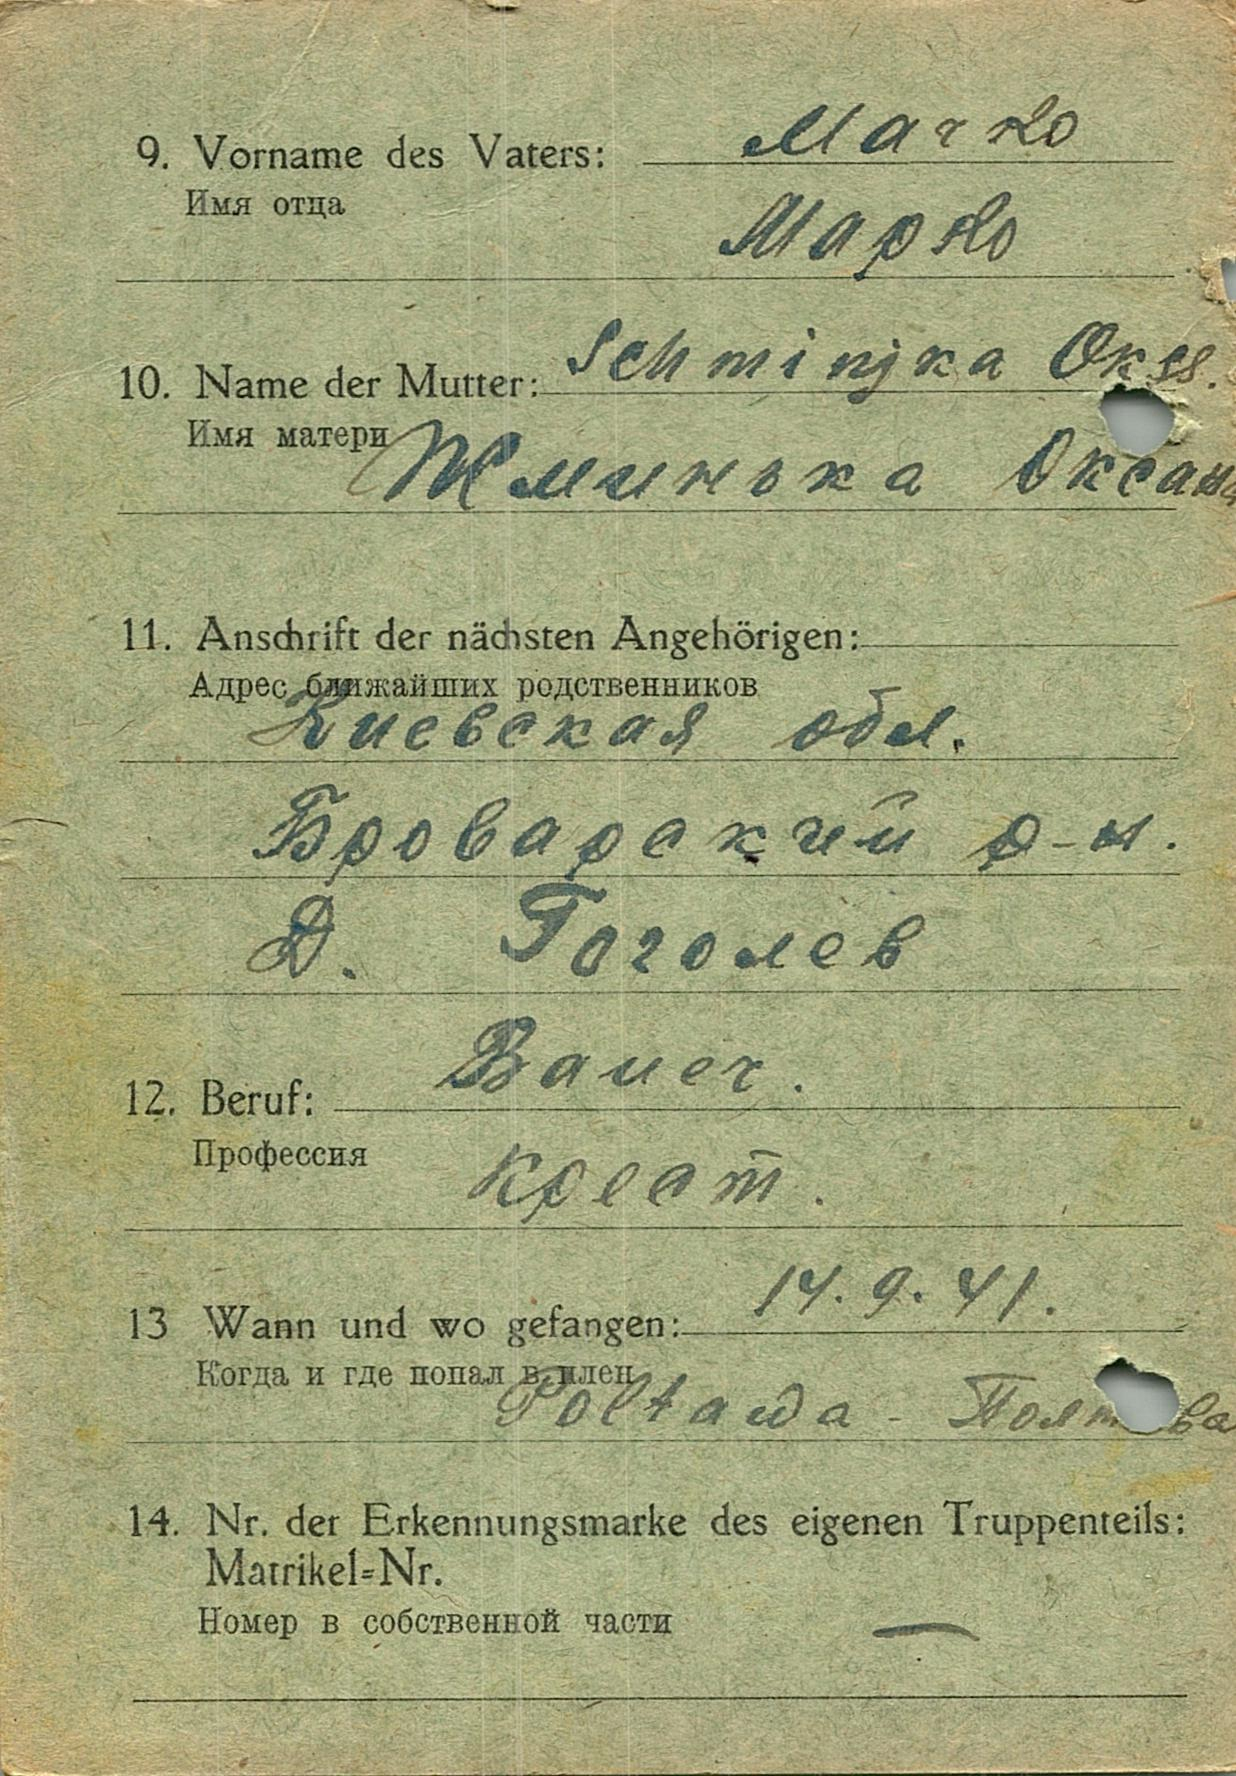 9. Vorname des Vaters: Marko
Имя отца
Марко
10. Name der Mutter: Schminjka Okss.
Имя матери
Жминька Оксана
11. Anschrift der nächsten Angehörigen:
Адрес ближайших родственников
Киевская обл.
Броварский р-н.
Д. Гоголев
12. Beruf: Bauer.
Профессия
крест.
13 Wann und wo gefangen: 14.9.41.
Когда и где попал в плен
Poltawa - Полтава
14. Nr. der Erkennungsmarke des eigenen Truppenteils:
Matrikel=Nr.
Номер в собственной части —